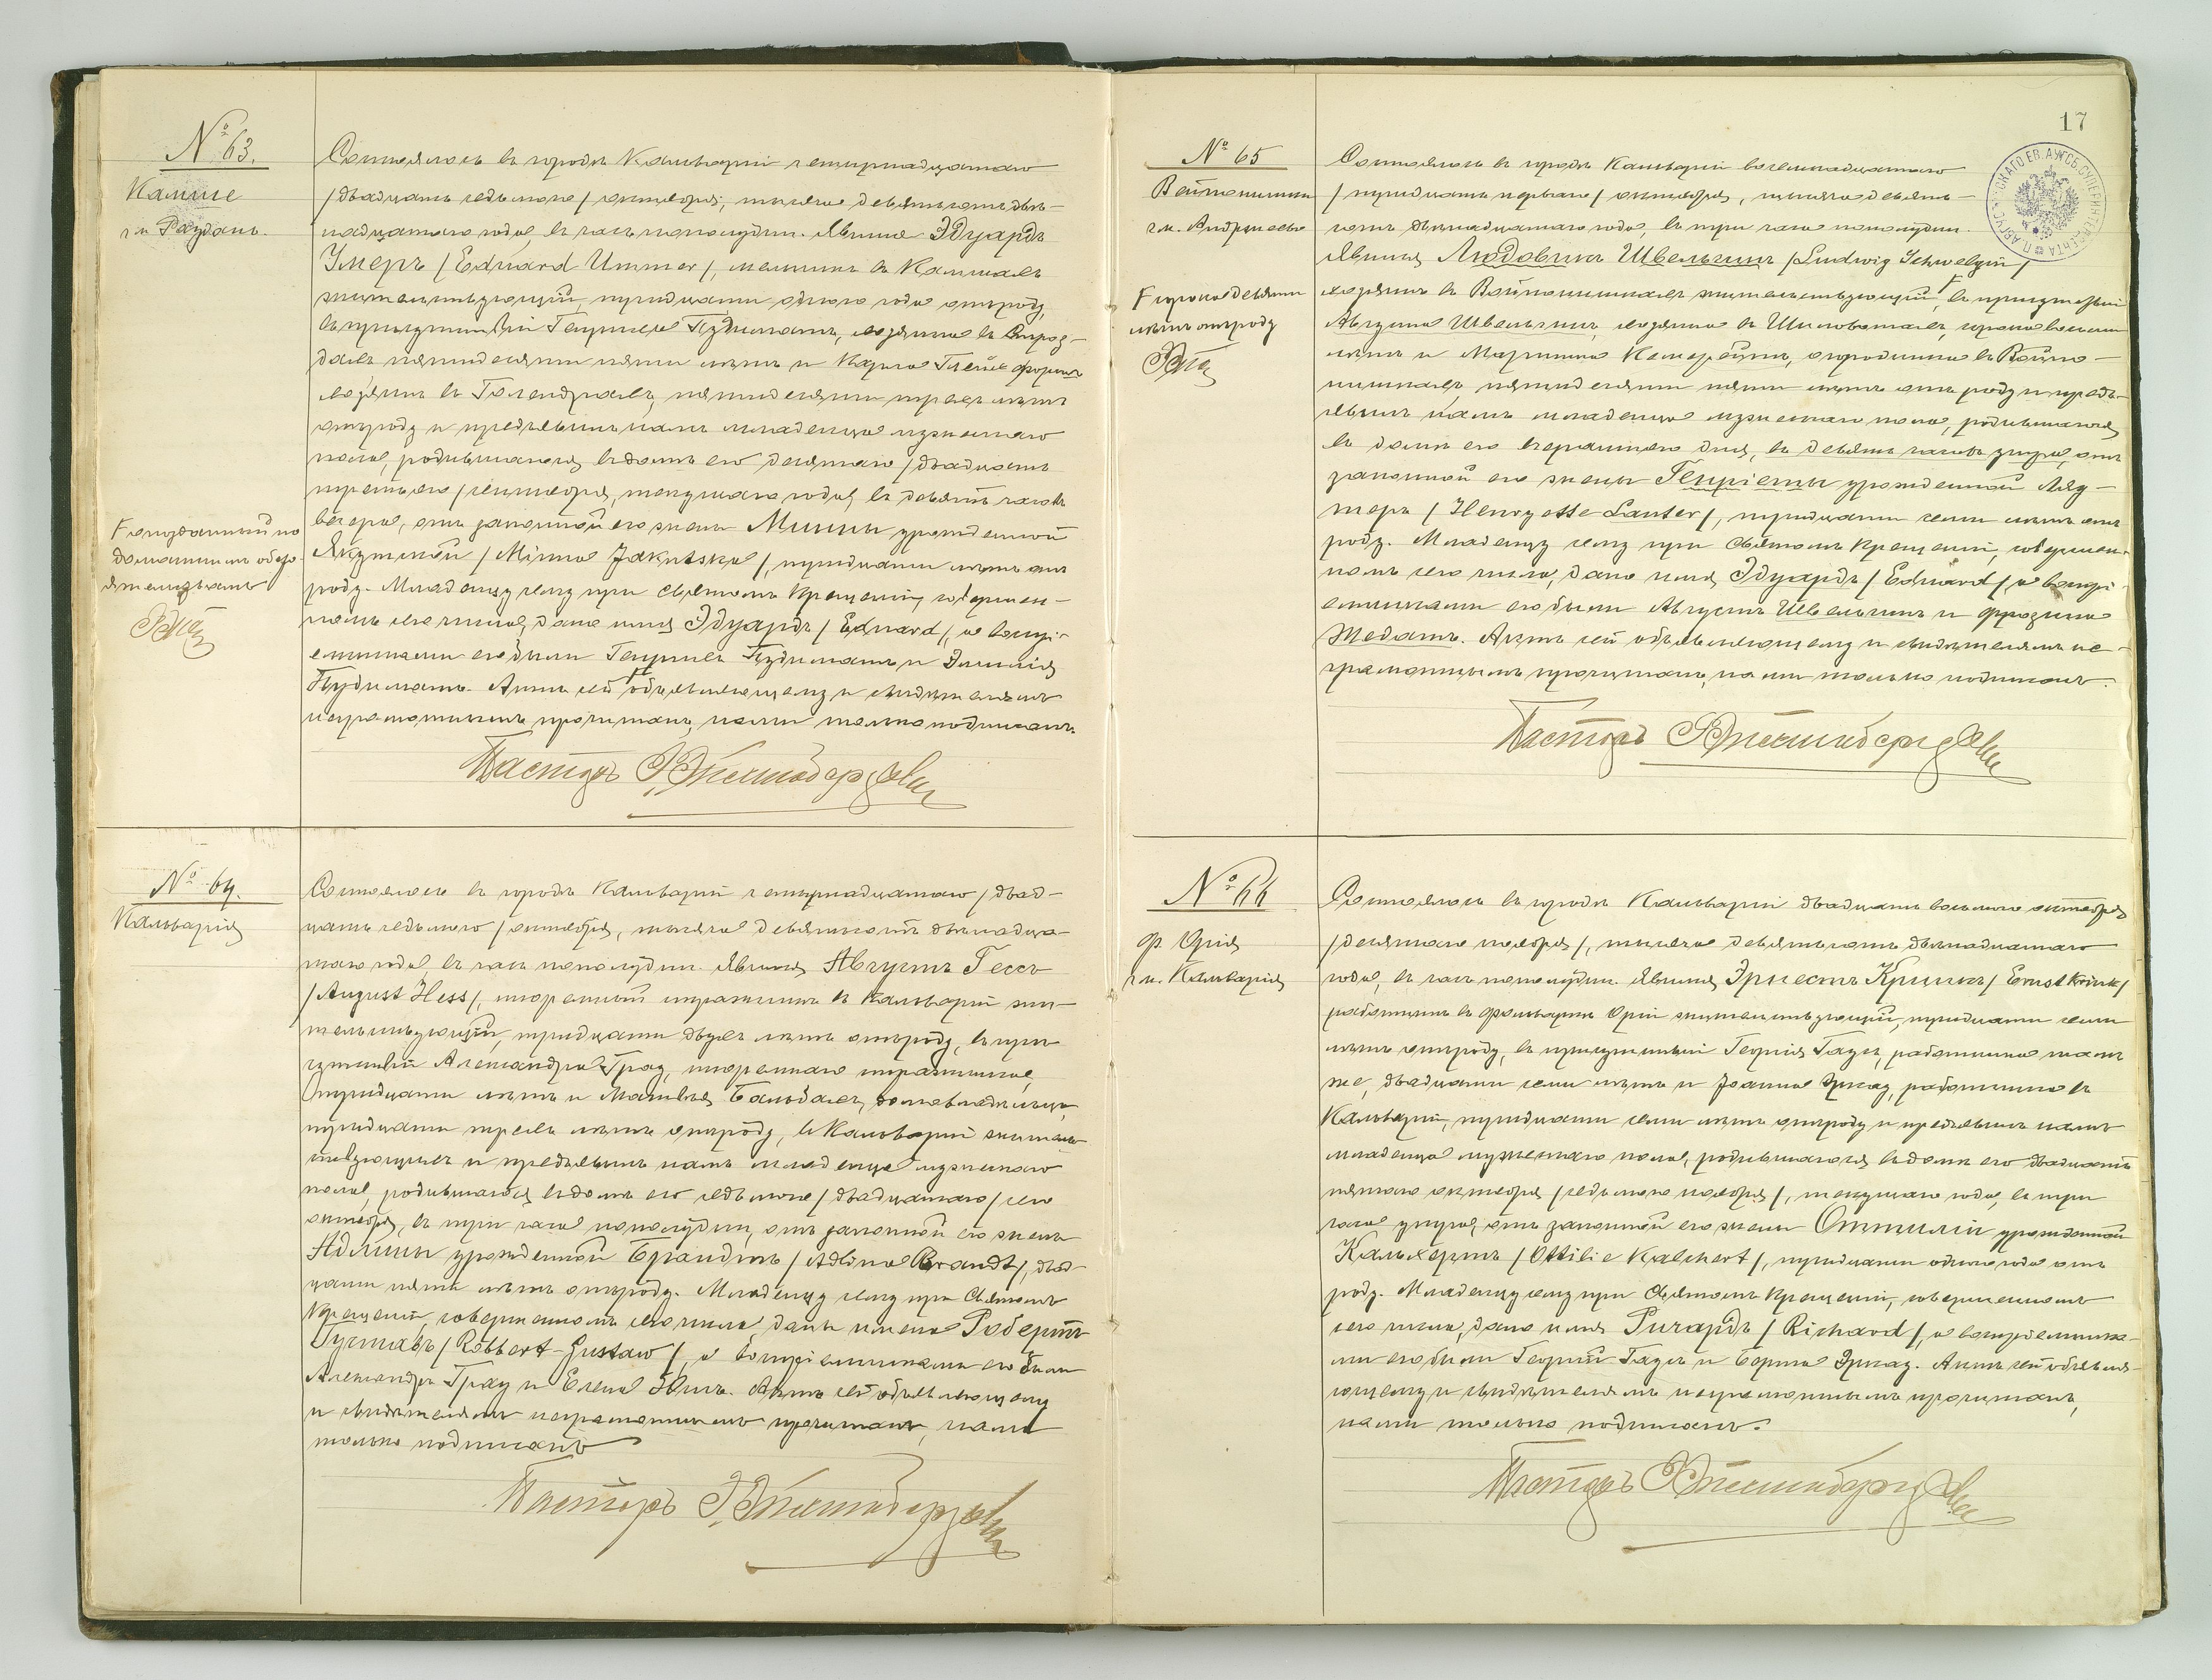 № 63.
Калине
г.м. Раудань.
Состоялось въ городѣ Кальваріи четырнадцатаго
/двадцать седьмого/ октября, тысяча девятьсотъ двѣ-
надцатаго года, въ часъ пополудни. Явился Эдуардъ
Умеръ /Eduard Ummer/, въ
жительствующій, тридцати одного года отъ роду,
въ присутствіи Генриха Пудиматъ, хозяина въ
пятидесяти пяти лѣтъ и Карла
хозяинъ въ пятидесяти трехъ лѣтъ
отъ роду и предъявилъ намъ младенца мужескаго
пола, родившагося въ домѣ его десятаго /двадцать
третьяго/ сентября, текущаго года, въ девять часовъ
вечера, отъ законной его жены Минны урожденной
Якутской /Minna Jakutska/, тридцати лѣтъ отъ
роду. Младенцу сему при Святомъ Крещеніи, совершен-
номъ сего числа, дано имя Эдуардъ /Eduard/, а воспрі-
емниками его были Генрихъ Пудиматъ и Эмилія
Пудиматъ. Актъ сей объявляющему и свидѣтелямъ
неграмотнымъ прочитанъ, нами только подписанъ.
Пасторъ
F опозданный по
домашнимъ обсто-
ятельствамъ
№ 64.
Кальварія
Состоялось въ городѣ Кальваріи четырнадцатаго /двад-
цать седьмого/ октября, тысяча девятьсотъ двѣнадца-
таго года, въ часъ пополудни. Явился Августъ Гессъ
/August Hess/, стражникъ въ Кальваріи жи-
тельствующій, тридцати двухъ лѣтъ отъ роду, въ при-
сутствіи Александра Грау, стражника,
тридцати лѣтъ и Матвѣя домовладѣльца,
тридцати трехъ лѣтъ отъ роду, въ Кальваріи житель-
ствующихъ и предъявилъ намъ младенца мужескаго
пола, родившагося въ домѣ его седьмого /двадцатаго/ сего
октября, въ три часа пополудни, отъ законной его жены
Адлины урожденной Брандтъ /Adlina Brandt/, двад-
цати пяти лѣтъ отъ роду. Младенцу сему при Святомъ
Крещеніи, совершенномъ сего числа, даны имена Робертъ
Густавъ /Robbert-Gustaw/, а воспріемниками его были
Александръ Грау и Елена Актъ сей объявляющему
и свидѣтелямъ неграмотнымъ прочитанъ, нами
только подписанъ
Пасторъ
17
№ 65
Войтокишки
г.м. Андржеево
Состоялось въ городѣ Кальваріи восемнадцатаго
/тридцать перваго/ октября, тысяча девять-
сотъ двѣнадцатаго года, въ три часа пополудни.
Явился Людовикъ Швельгинъ /Ludwig Schwelgin/
хозяинъ въ жительствующій, F въ присутствіи
Августа Швельгинъ, хозяина въ сорока восьми
лѣтъ и Мартина въ
пятидесяти пяти лѣтъ отъ роду и предъ-
явилъ намъ младенца мужескаго пола, родившагося
въ домѣ его вчерашняго дня, въ девять часовъ утра, отъ
законной его жены Генріеты урожденной Ляу-
теръ /Henryette Lauter/, тридцати семи лѣтъ отъ
роду. Младенцу сему при Святомъ Крещеніи, совершен-
номъ сего числа, дано имя Эдуардъ /Eduard/, а воспрі-
емниками его были Августъ Швельгинъ и
Жедатъ. Актъ сей объявляющему и свидѣтелямъ не-
грамотнымъ прочитанъ, нами только подписанъ.
Пасторъ
F сорока девяти
лѣтъ отъ роду
№ 66
ф. Орія
г.м. Кальварія
Состоялось въ городѣ Кальваріи двадцать восьмого октября
/десятаго ноября/, тысяча девятьсотъ двѣнадцатаго
года, въ часъ пополудни. Явился Эрнестъ Кринкъ /Ernst Krink/
работникъ въ фольваркѣ Оріи жительствующій, тридцати семи
лѣтъ отъ роду, въ присутствіи Георгія работника тамъ
же, двадцати семи лѣтъ и Іоанна работника въ
Кальваріи, тридцати семи лѣтъ отъ роду и предъявилъ намъ
младенца мужескаго пола, родившагося въ домѣ его двадцать
пятаго октября /седьмого ноября/, текущаго года, въ три
часа утра, отъ законной его жены Оттиліи урожденной
Кальхертъ /Ottilie Kalchert/, тридцати одного года отъ
роду. Младенцу сему при Святомъ Крещеніи, совершенномъ
сего числа, дано имя Ричардъ /Richard/, а воспріемника-
ми его были Георгій и Берта Актъ сей объявля-
ющему и свидѣтелямъ неграмотнымъ прочитанъ,
нами только подписанъ.
Пасторъ